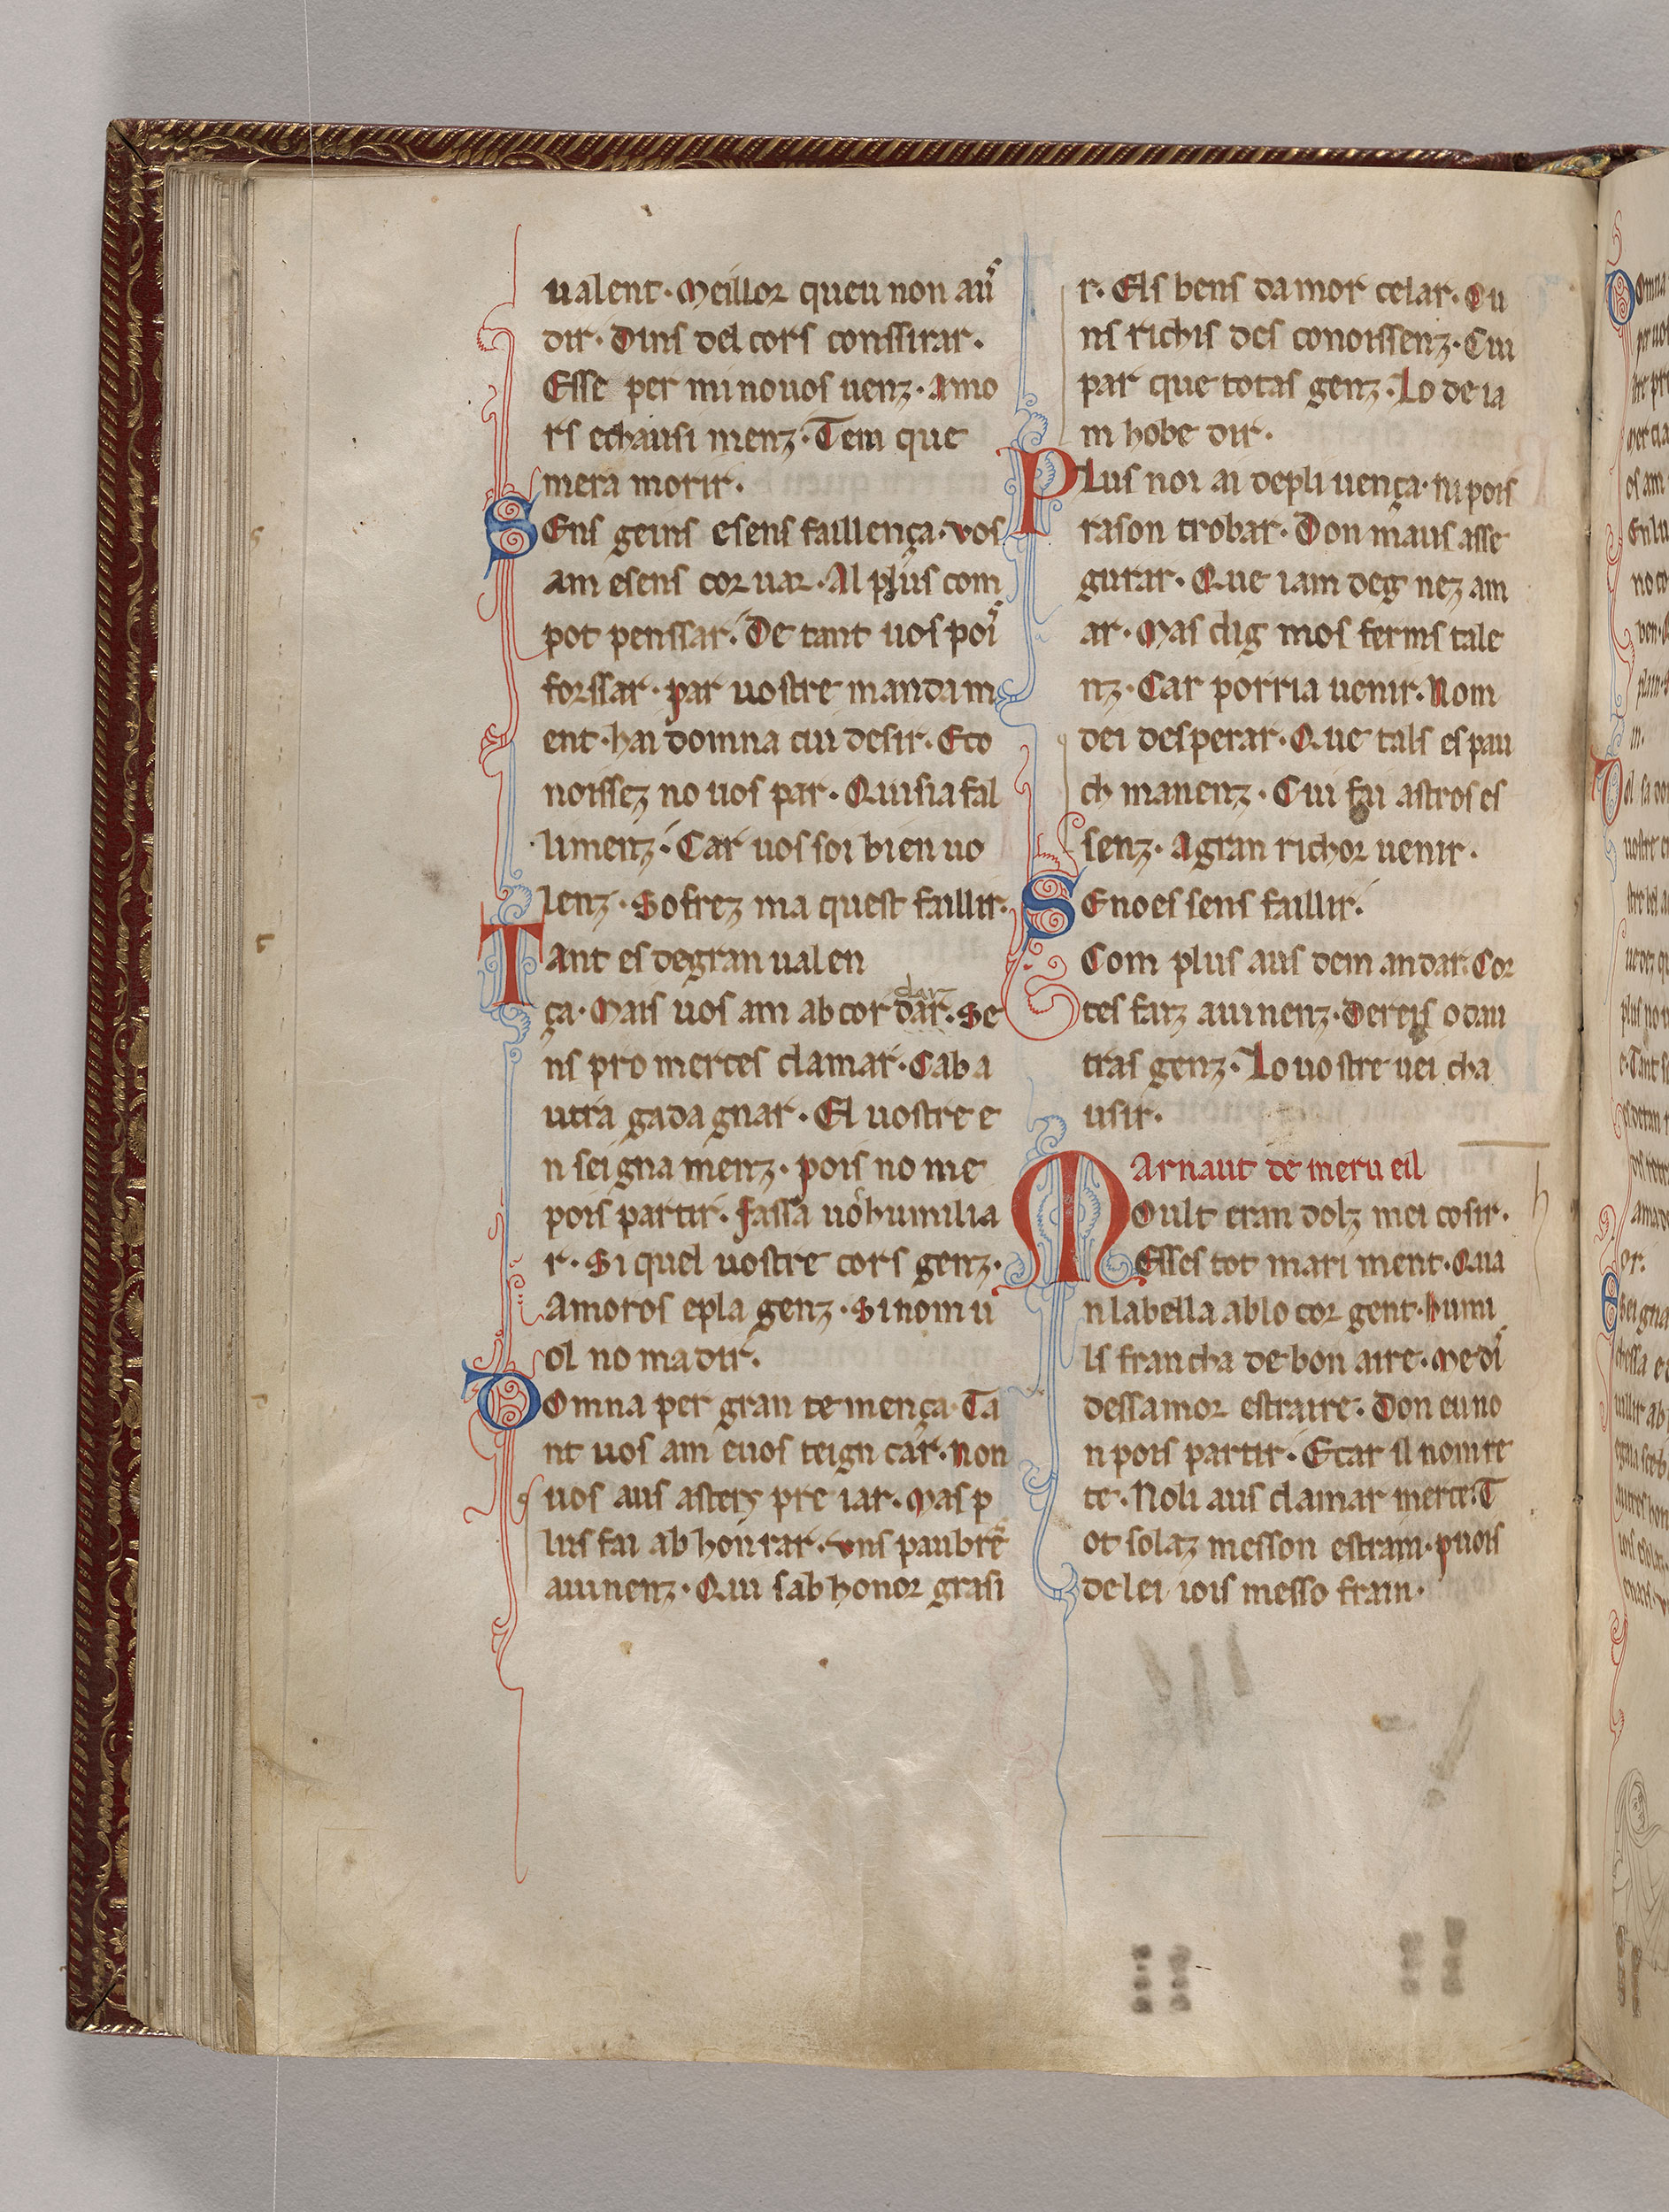 ualent· Meillor queu non auſ
dir· Dins del cors conssirar·
Esse per mi nouos uenz· amo
rs echausi menz· Tem que
mera morir·
SEns geins esens faillença· vos
am esens cor uar· Al plus com
pot penssar· De tant uos poiſ
forssar· par uostre mandam
ent· hai domna cui desir· Eco
noissez no uos par· Quisia fal
limenz· Car uos soi bien uo
lenz· Sofrez ma quest faillir·
Tant es degran ualen
ça· Mais uos am ab cor dar· Se
clar
ns pro merces clamar· Cab a
utra gada gnar· El uostre e
n seigna menz· pois no me
pois partir· fassa uo humilia
r· Si quel uostre cors genz·
Amoros epla genz· Si nom u
ol no ma dir·
Domna per gran te mença· Ta
nt uos am euos teign car· non
uos aus asters pre iar· Mas p
lus fai ab honrar· vns paubre
auinenz· Qui sab honor grasi
r· Els bens damor celar· Cu
ns richis des conoissenz· Cui
par que totas genz· Lo de ia
m hobe dir·
Plus noi ai depli uença· ni pois
rason trobar· Don maus asse
gurar· Que iam deg nez am
ar· Mas dig mos ferms tale
nz· Car porria uenir· Nom
dei desperar· Que tals es pau
ch manenz· Cui fu astros es
senz· A gran richor uenir·
SEnoes sens faillir·
Com plus aus dem andar· Cor
tes faiz auinenz· Dereis odau
tras genz· Lo uostre uei cha
usir·
Arnaut de meru eil
Moult eran dolz mei cosir·
Esses tot mari ment· Qua
n labella ablo cor gent· humi
ls francha de bon aire· Me diſ
dessamor estraire· Don eu no
n pois partir· Ecar il nom re
te· Noli aus clamar merce· T
ot solaz messon estrain· puois
de lei iois messo frain·